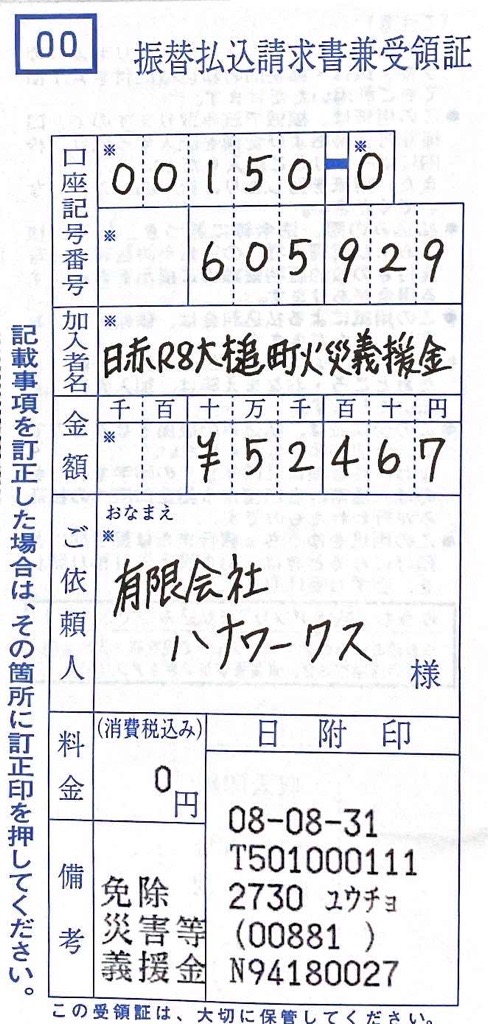 00
振替払込請求書兼受領証
口座記号番号
※
00150-0
※
※
605929
加入者名
※
日赤R8大槌町火災義援金
金額
千百十万千百十円
※
¥52467
ご依頼人
おなまえ
※
有限会社
ハナワークス
様
料金
(消費税込み)
0円
日附印
08-08-31
T501000111
2730 ユウチョ
(00881 )
N94180027
備考
免除
災害等
義援金
記載事項を訂正した場合は、その箇所に訂正印を押してください。
この受領証は、大切に保管してください。